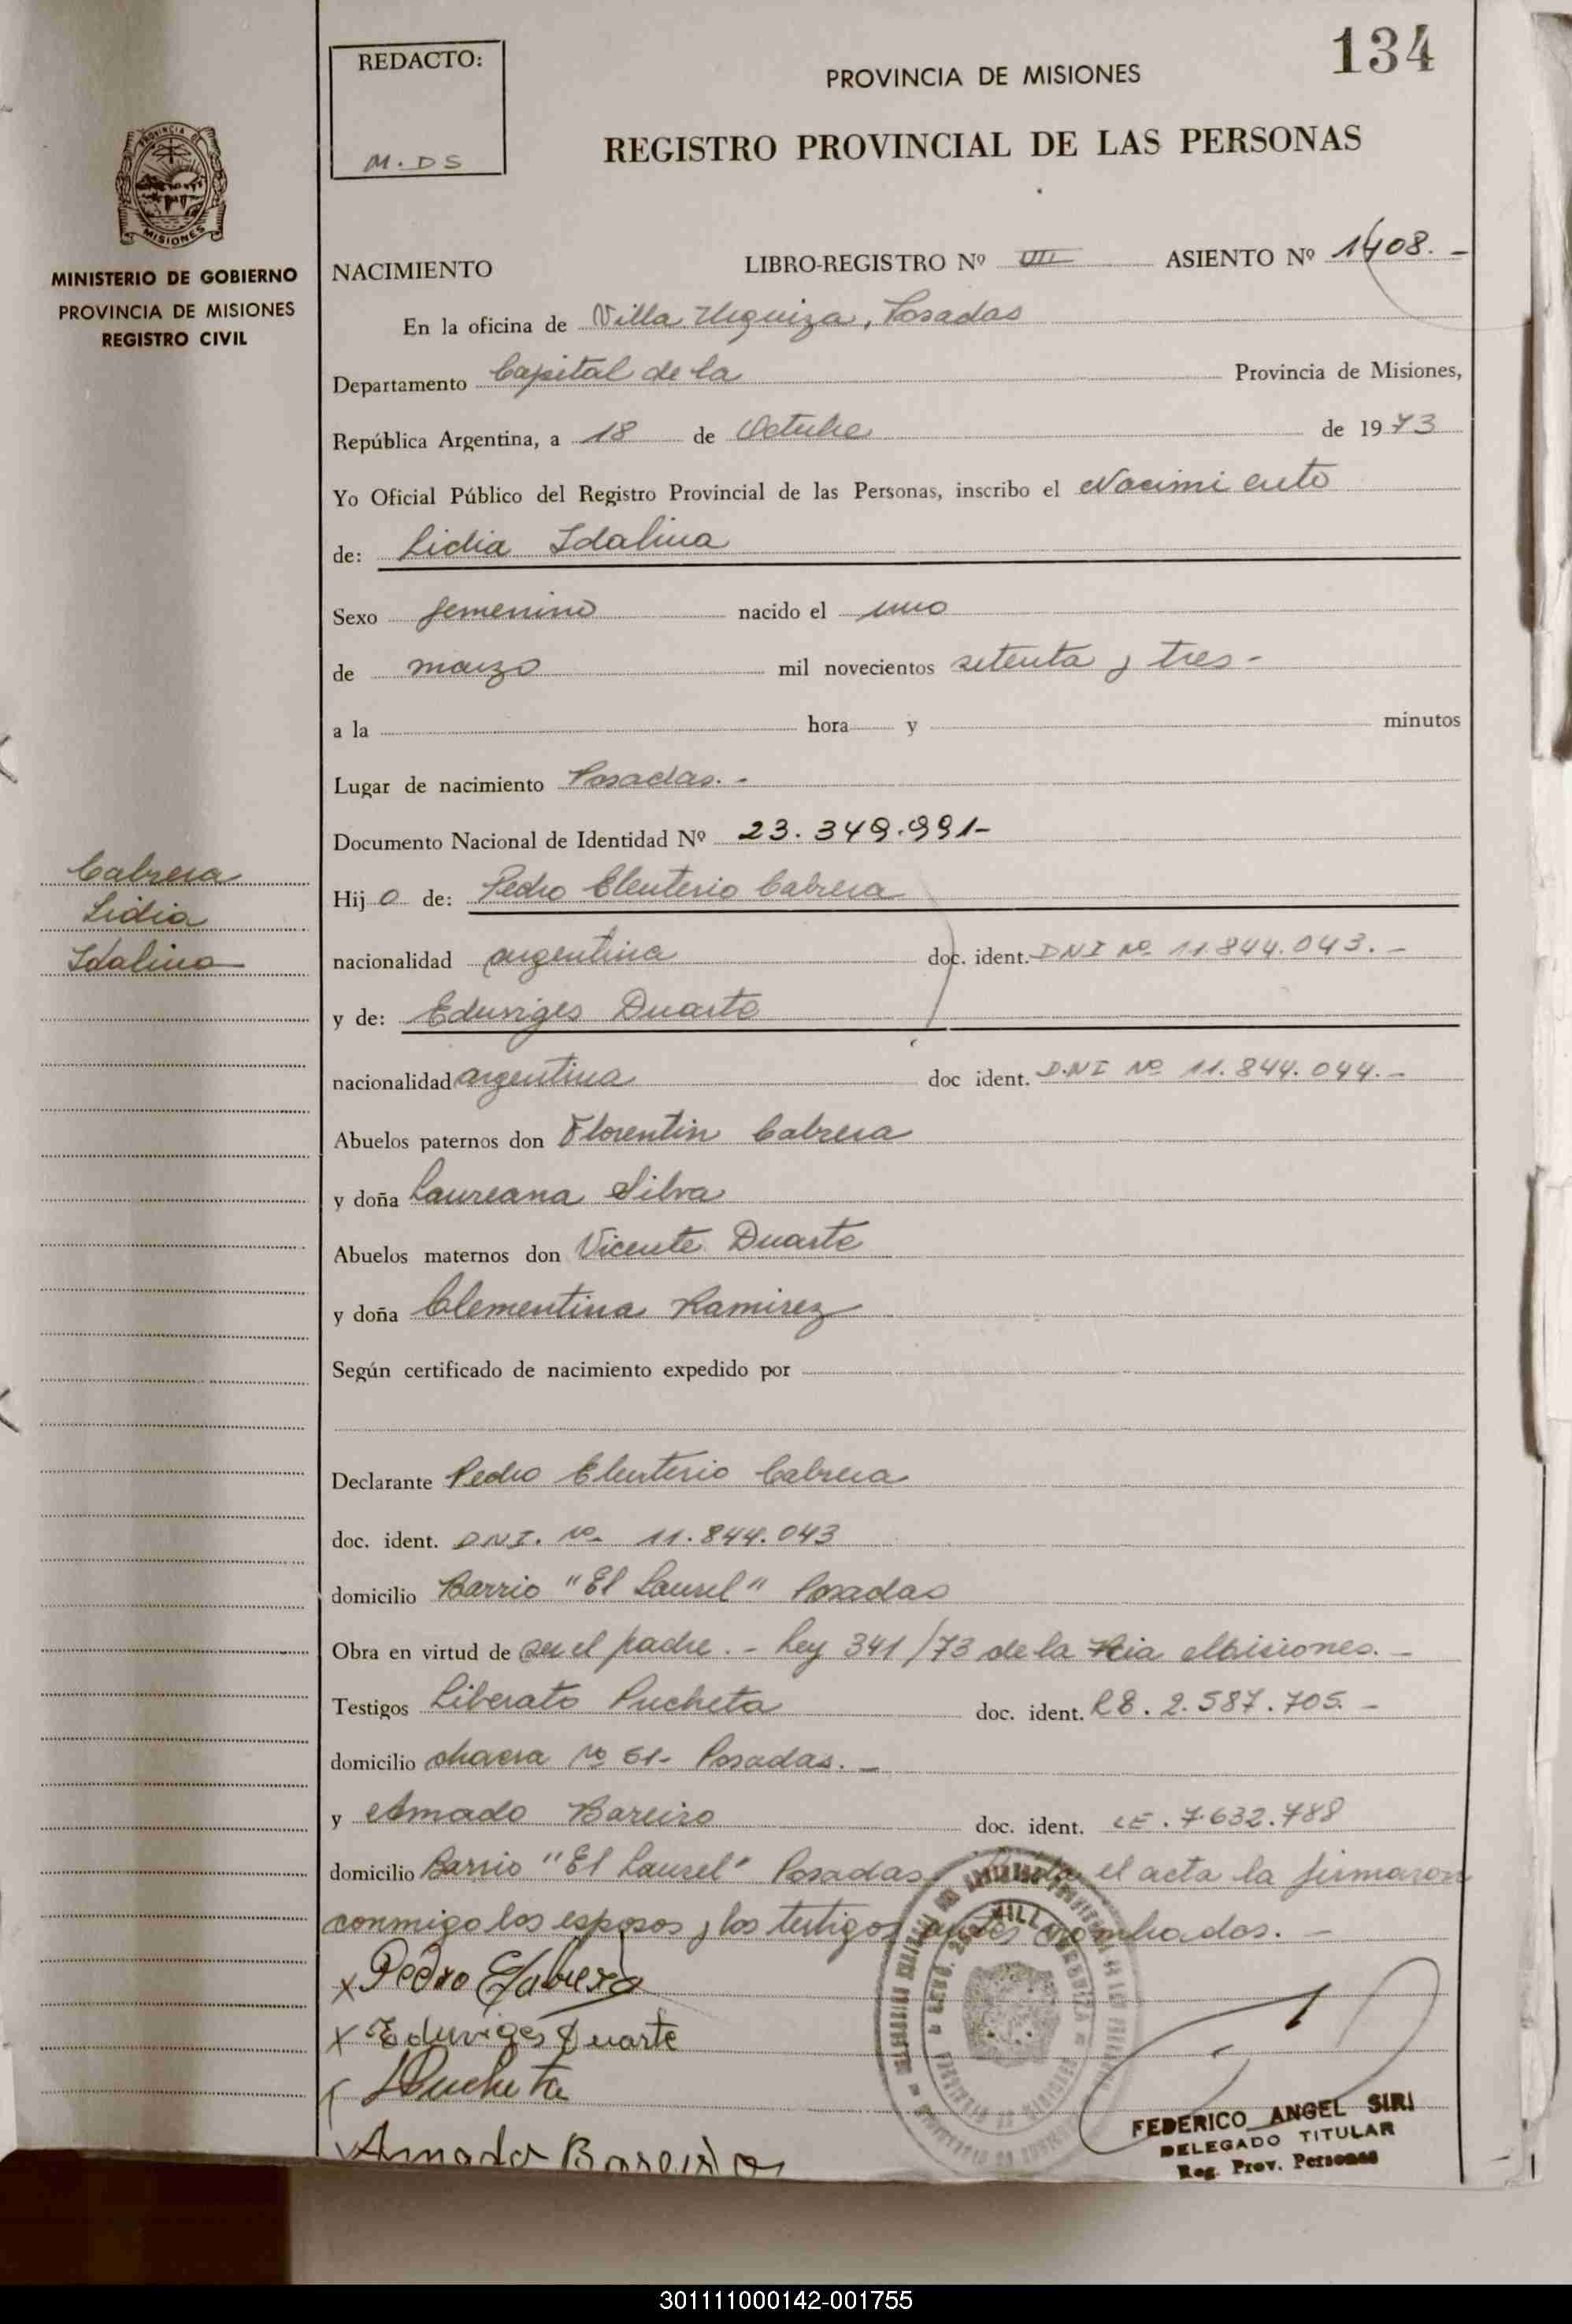 134
REDACTO:
M. DS
PROVINCIA DE MISIONES
REGISTRO PROVINCIAL DE LAS PERSONAS
PROVINCIA DE
MISIONES
MINISTERIO DE GOBIERNO
PROVINCIA DE MISIONES
REGISTRO CIVIL
NACIMIENTO LIBRO-REGISTRO Nº VIII ASIENTO Nº 1408.-
En la oficina de Villa Urquiza, Posadas
Departamento Capital de la Provincia de Misiones,
República Argentina, a 18 de Octubre de 1973
Yo Oficial Público del Registro Provincial de las Personas, inscribo el Nacimiento
de: Lidia Idalina
Sexo femenino nacido el uno
de marzo mil novecientos setenta y tres-
a la hora y minutos
Lugar de nacimiento Posadas.-
Documento Nacional de Identidad Nº 23.349.991-
Cabrera
Lidia
Idalina
Hij a de: Pedro Eleuterio Cabrera
nacionalidad argentina doc. ident. DNI Nº 11.844.043.-
y de: Eduviges Duarte
nacionalidad argentina doc ident. D.NI Nº 11.844.044.-
Abuelos paternos don Florentin Cabrera
y doña Laureana Silva
Abuelos maternos don Vicente Duarte
y doña Clementina Ramirez
Según certificado de nacimiento expedido por
Declarante Pedro Eleuterio Cabrera
doc. ident. DNI. Nº 11.844.043
domicilio Barrio "El Laurel" Posadas
Obra en virtud de ser el padre.- Ley 341/73 de la Pcia Misiones.-
Testigos Liberato Pucheta doc. ident. 2.587.705.-
domicilio chacra Nº 61- Posadas.-
y Amado Bareiro doc. ident. LE. 7.632.788
domicilio Barrio "El Laurel" Posadas el acta la firmaron
conmigo los esposos y los testigos antes nombrados.-
x Pedro E Cabrera
x Eduviges Duarte
LPucheta
Amado Bareiro
FEDERICO ANGEL SIRI
DELEGADO TITULAR
Reg. Prov. Personas
301111000142-001755